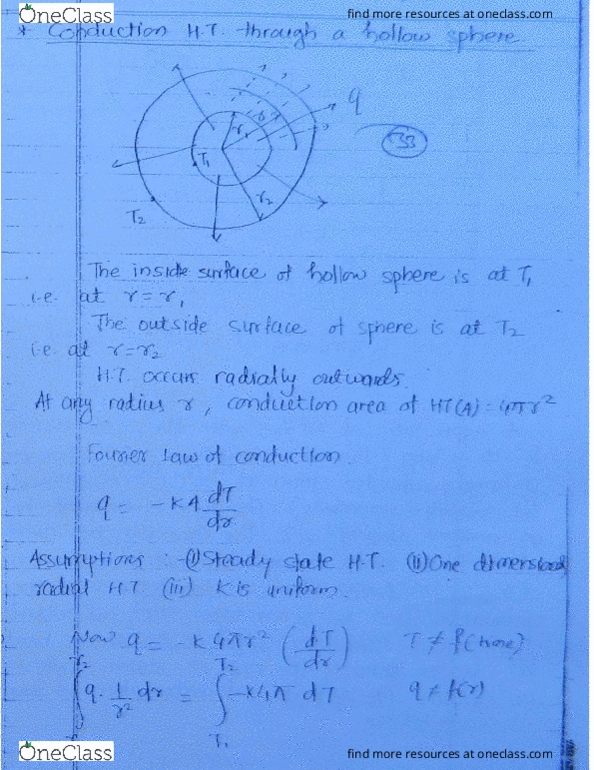 OneClass
find more resources at oneclass.com
* Conduction H.T. through a hollow sphere
q
r
r1
T1
r2
T2
33
The inside surface of hollow sphere is at T1
i.e. at r=r1
The outside surface of sphere is at T2
i.e. at r=r2
H.T. occurs radially outwards.
At any radius r, conduction area of HT(A) = 4πr²
Fourier Law of conduction.
q = -KA dT/dr
Assumptions : -(i) Steady state H.T. (ii) One dimensional
radial H.T. (iii) K is uniform.
Now q = -K 4πr² (dT/dr) T ≠ f(time)
∫ r2 q. 1/r² dr = ∫ T1 T2 -K4π dT q ≠ f(r)
OneClass
find more resources at oneclass.com